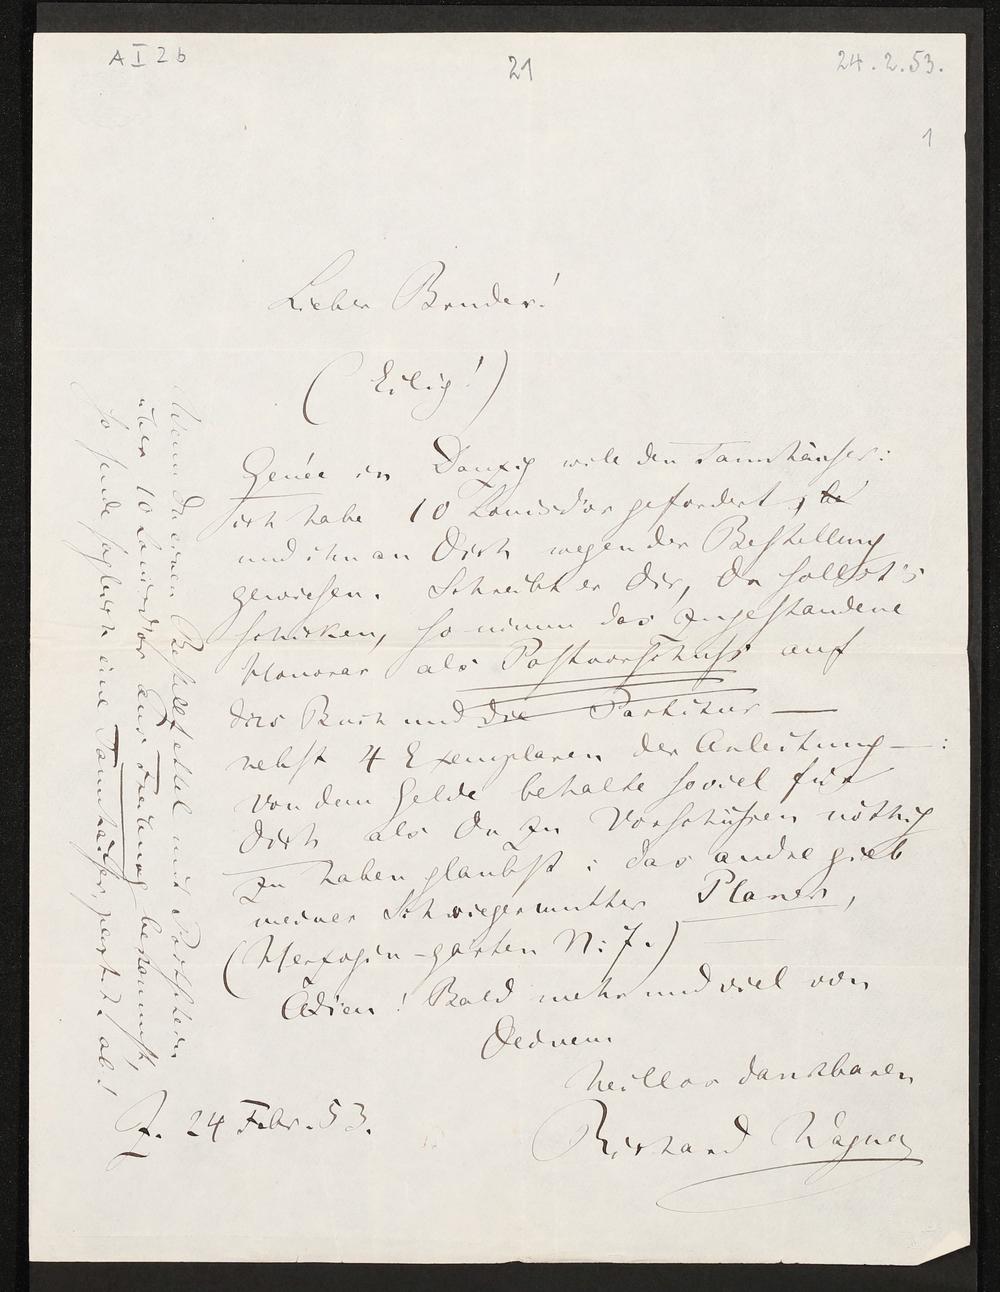 A I 2 b
21
24.2.53.
1
Lieber Bruder!
(Eilig!)
Genée in Danzig will den Tannhäuser:
ich habe 10 Louisd'or gefordert,
und ihn an Dich wegen der Bestellung
gewiesen. Schreibt er Dir, Du sollst's
schicken, so nimm das zugestandene
Honorar als Postvorschuss auf
das Buch und die Partitur —
nebst 4 Exemplaren der Anleitung —:
von dem Gelde behalte soviel für
Dich als Du zu Vorschüssen nöthig
zu haben glaubst: das andre gieb
meiner Schwiegermutter Planer,
(Herzogin-garten N: 7.)
Adieu! Bald mehr und viel von
Deinem
dankbaren
Richard Wagner
Z. 24 Febr. 53.
Wenn Du einen Bestellzettel mit Postschein
über 10 Louisd'or aus Freiburg bekommst,
so sende sogleich eine Tannhäuser part. ab!